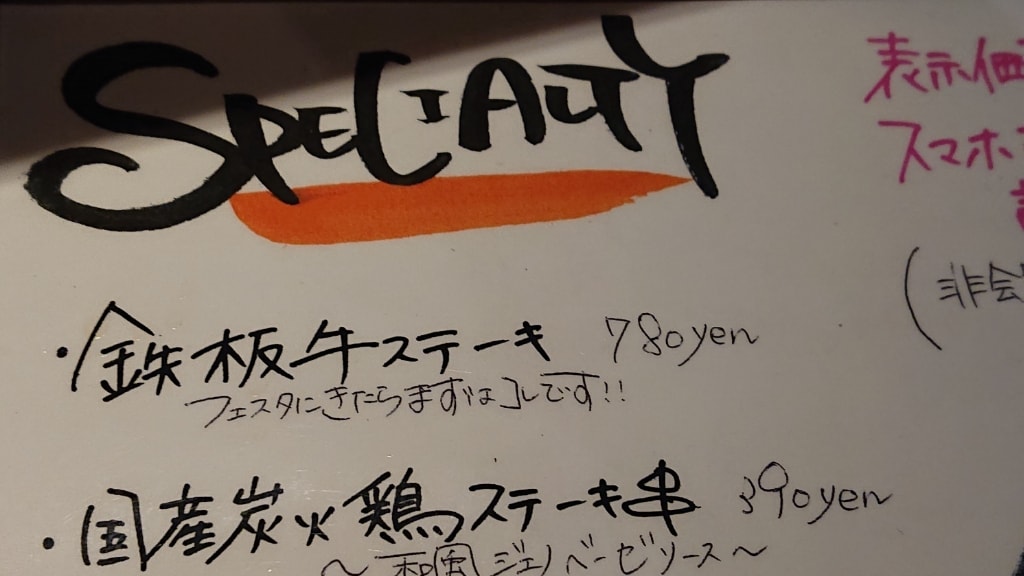 SPECIALTY
・鉄板牛ステーキ 780yen
フェスタにきたらまずはコレです!!
・国産炭火鶏ステーキ串 390yen
〜和風ジェノベーゼソース〜
表示価
スマホ
(非会